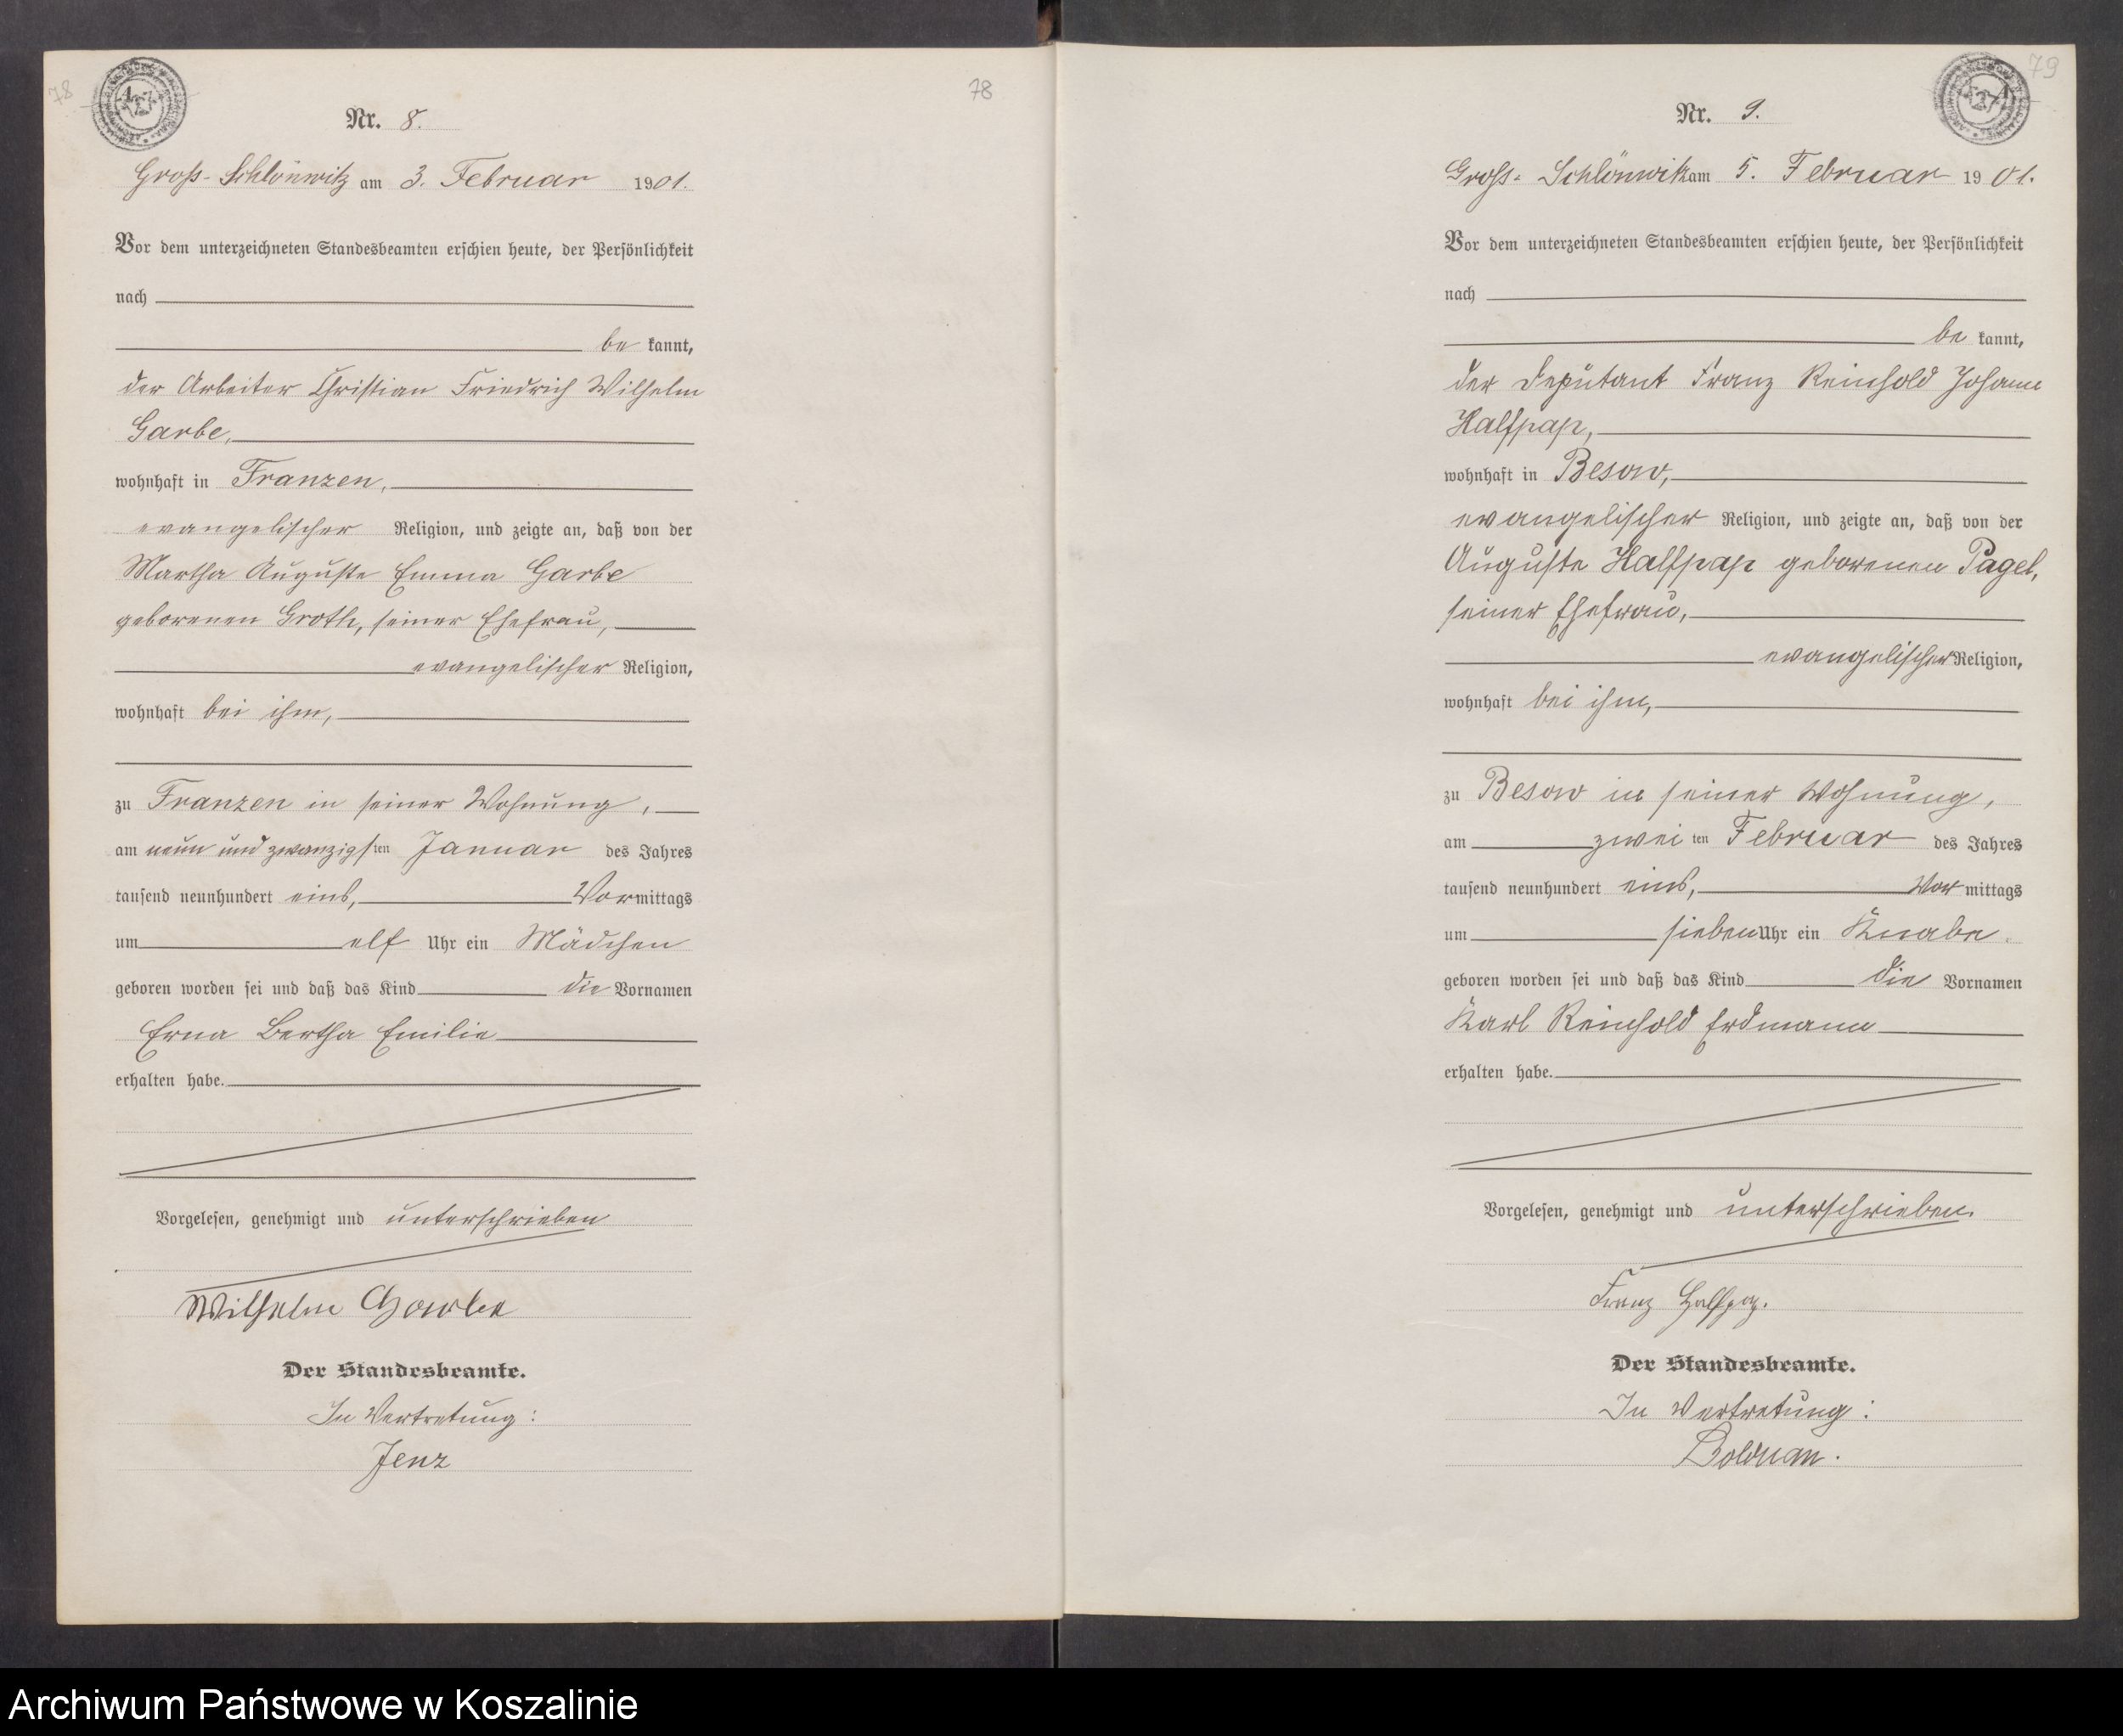 78
Nr. 8.
78
Groß-Schlönwitz am 3. Februar 1901.
Vor dem unterzeichneten Standesbeamten erschien heute, der Persönlichkeit
nach
be kannt,
der Arbeiter Christian Friedrich Wilhelm
Garbe,
wohnhaft in Franzen,
evangelischer Religion, und zeigte an, daß von der
Martha Auguste Emma Garbe
geborenen Groth, seiner Ehefrau,
evangelischer Religion,
wohnhaft bei ihm,
zu Franzen in seiner Wohnung,
am neun und zwanzigsten Januar des Jahres
tausend neunhundert eins, Vormittags
um elf Uhr ein Mädchen
geboren worden sei und daß das Kind die Vornamen
Erna Bertha Emilie
erhalten habe.
Vorgelesen, genehmigt und unterschrieben
Wilhelm Garbe
Der Standesbeamte.
In Vertretung:
Jenz
79
Nr. 9.
Groß-Schlönwitz am 5. Februar 1901.
Vor dem unterzeichneten Standesbeamten erschien heute, der Persönlichkeit
nach
be kannt,
der Deputant Franz Reinhold Johann
Halfpap,
wohnhaft in Besow,
evangelischer Religion, und zeigte an, daß von der
Auguste Halfpap geborenen Pagel,
seiner Ehefrau,
evangelischer Religion,
wohnhaft bei ihm,
zu Besow in seiner Wohnung,
am zwei ten Februar des Jahres
tausend neunhundert eins, Vor mittags
um sieben Uhr ein Knabe
geboren worden sei und daß das Kind die Vornamen
Karl Reinhold Erdmann
erhalten habe.
Vorgelesen, genehmigt und unterschrieben.
Franz Halfpap.
Der Standesbeamte.
In Vertretung:
Bolduan.
Archiwum Państwowe w Koszalinie